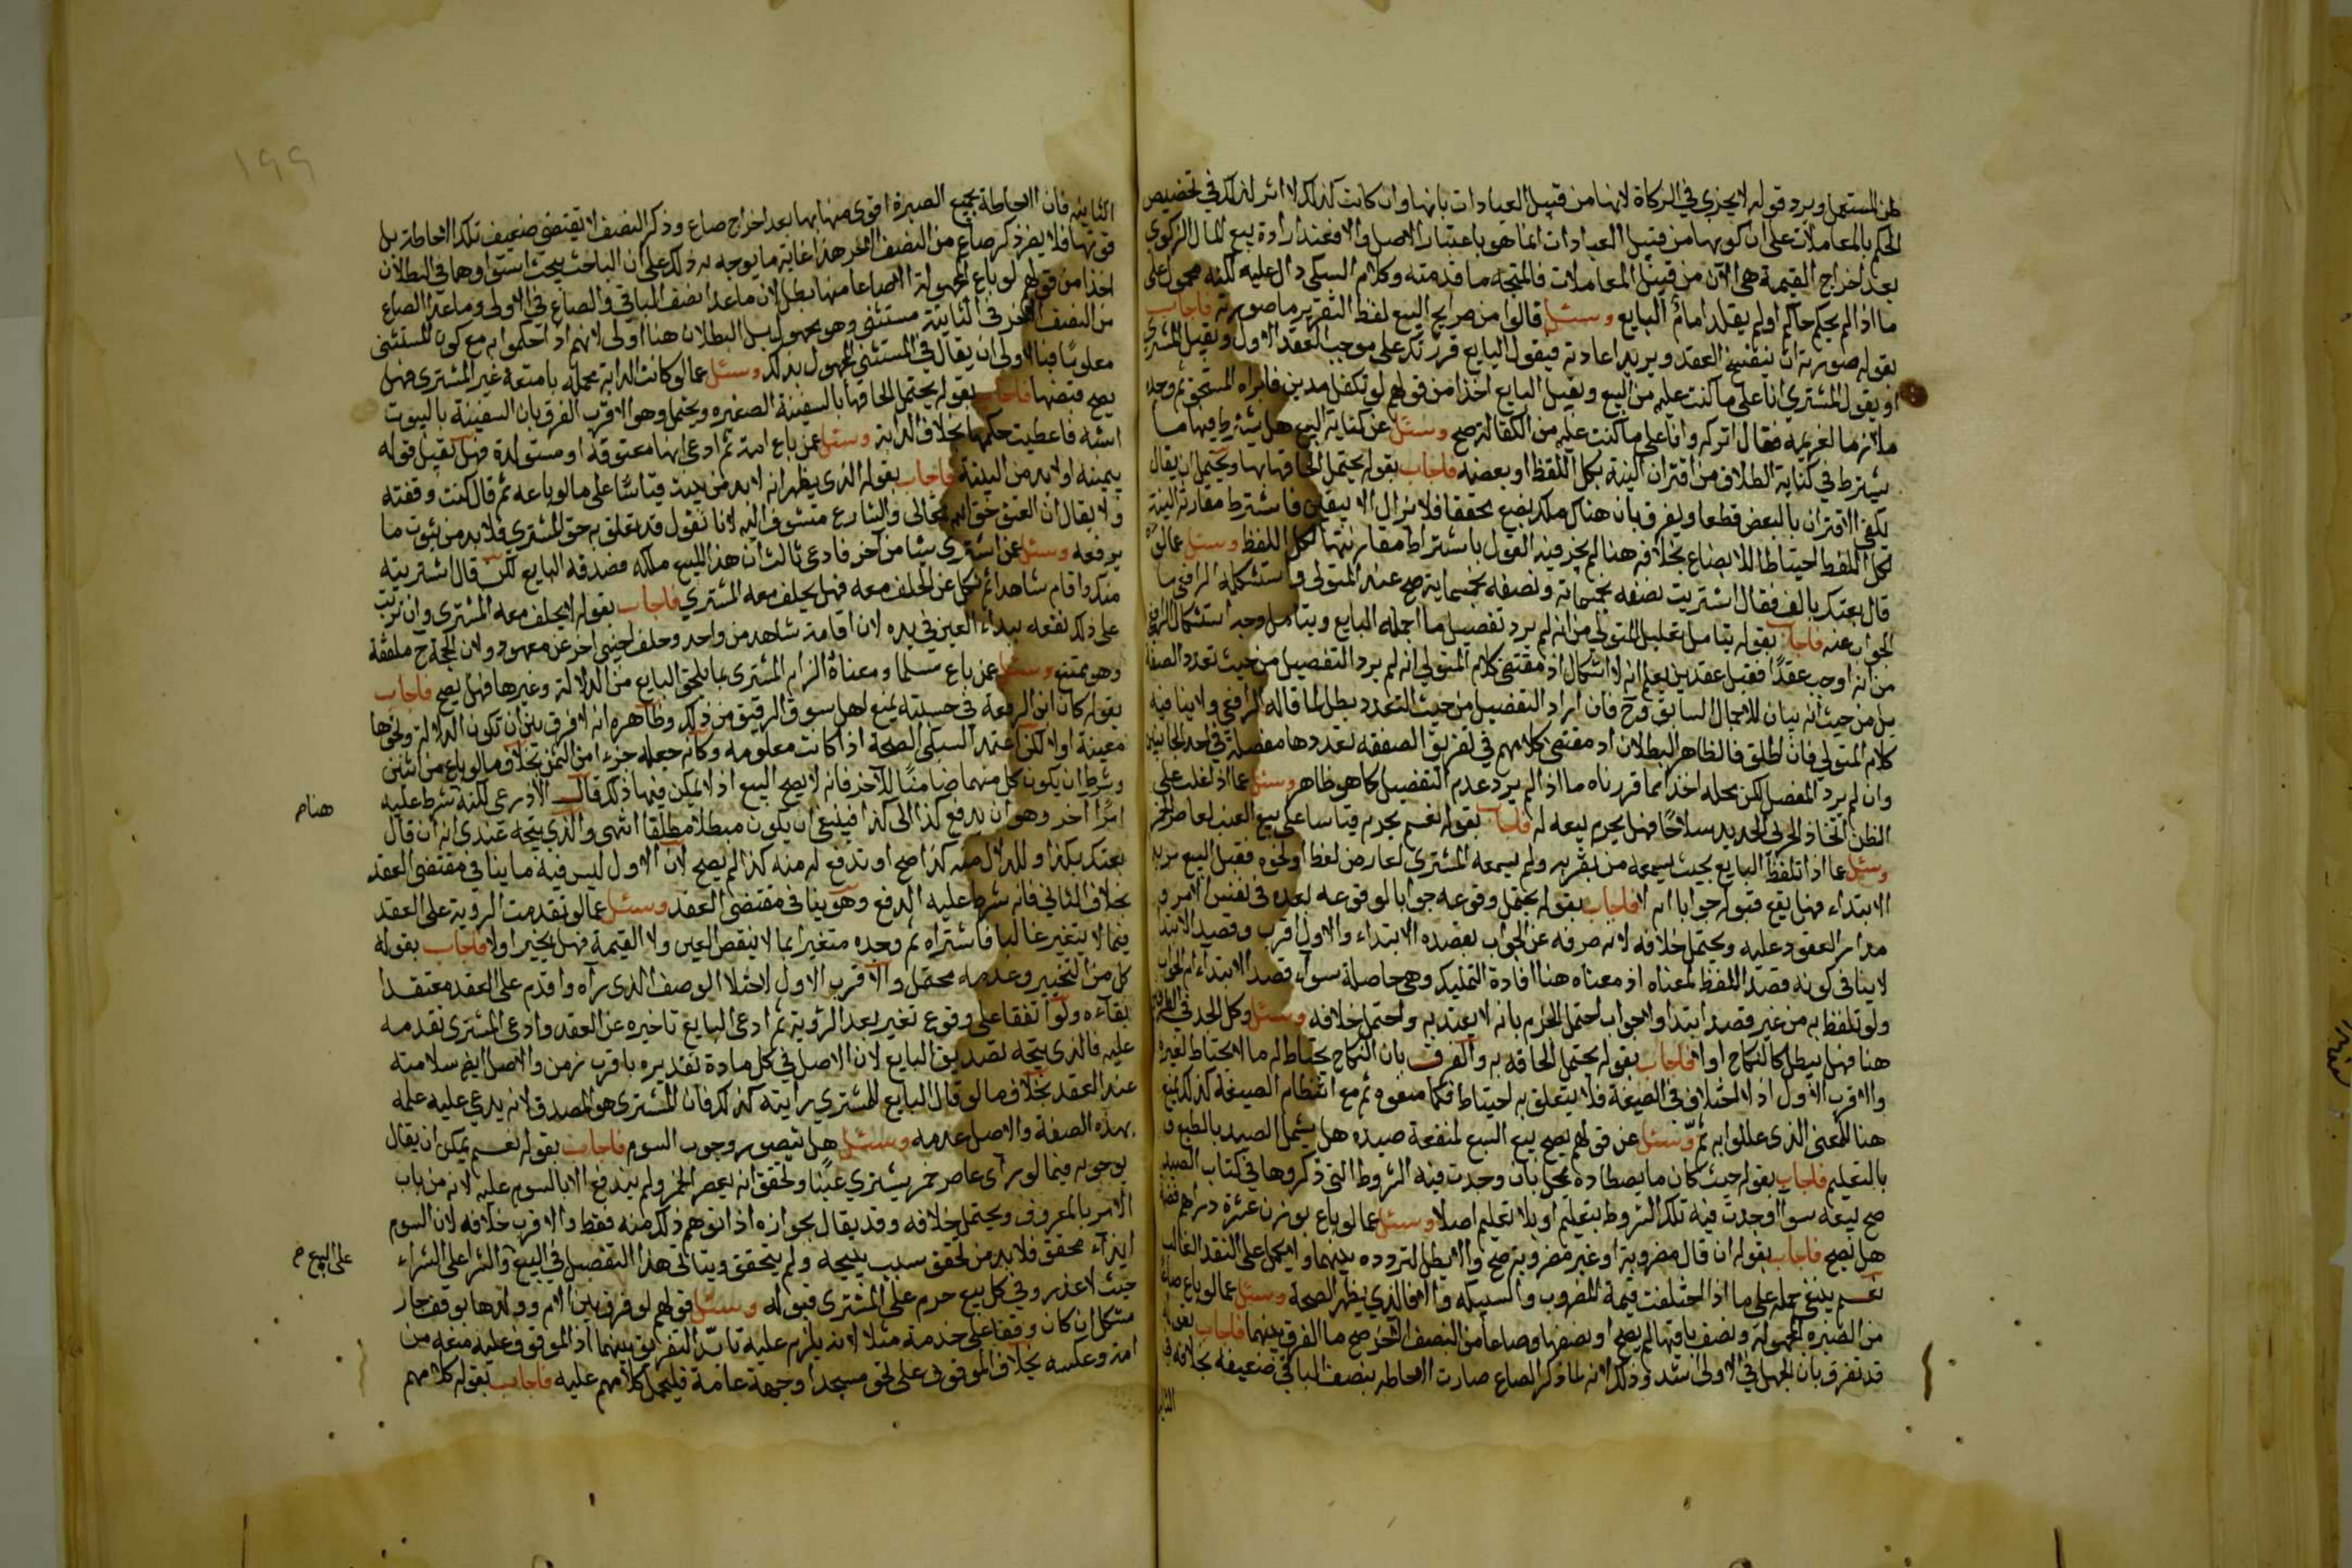 لمن المستعمل ويرد قوله لا يجزي في الزكاة لانها من قبيل العبادات بانها وان كانت كذلك لا اثر لذلك في تخصيص
الحكم بالمعاملات على ان كونها من قبيل العبادات انما هو باعتبار الاصل والا فعند ارادة بيع المال الزكوي
بعد اخراج القيمة هي الآن من قبيل المعاملات فالمتجه ما قدمته وكلام السبكي دال عليه لكنه محمول على
ما اذا لم يحكم حاكم او لم يقلد امام البايع وسئل قالوا من صرايح البيع لفظ التقرير ما صورته فاجاب
بقوله صورته ان ينفسخ العقد ويريد اعادته فيقول البايع قررتك على موجب العقد الاول ويقبل المشتري
او يقول المشتري انا على ما كنت عليه من البيع ويقبل البايع اخذا من قولهم لو تكفل مدين فابراه المستحق ثم وجده
ملازما لغريمه فقال اتركه وانا على ما كنت عليه من الكفالة صح وسئل عن كناية البيع هل يشترط فيها ما
يشترط في كناية الطلاق من اقتران النية بكل اللفظ او بعضه فاجاب بقوله يحتمل الحاقها بها ويحتمل ان يقال
يكفي الاقتران بالبعض قطعا ويفرق بان هناك ملك بضع محققا فلا يزال الا بيقين فاشترط مقارنة النية
لكل اللفظ احتياطا للابضاع بخلافه هنا لم يجز فيه القول باشتراط مقارنتها لكل اللفظ وسئل عما لو
قال بعتك بالف فقال اشتريت نصفه بخمسماية ونصفه بخمسماية صح عند المتولي واستشكله الرافعي ما
الجواب عنه فاجاب بقوله يتامل تعليل المتولي من انه لم يرد تفصيل ما اجمله البايع ويتامل وجه استشكال الرافعي
من انه اوجب عقدا فقبل عقدين يعلم انه لا اشكال اذ مقتضى كلام المتولي انه لم يرد التفصيل من حيث تعدد الصفقة
بل من حيث انه بيان للاجمال السابق وح فان اراد التفصيل من حيث التعدد بطل لما قاله الرافعي ولا ينافيه
كلام المتولي فان اطلق فالظاهر البطلان اذ مقتضى كلامهم في تفريق الصفقة تعددها مفصلة في احد الجانبين
وان لم يرد المفصل لكن محله اخذا مما قررناه ما اذا لم يرد عدم التفصيل كما هو ظاهر وسئل عما اذا غلب على
الظن اتخاذ الحربي الحديد سلاحا فهل يحرم بيعه له فاجاب بقوله نعم يحرم قياسا على بيع العنب لعاصر الخمر
وسئل عما اذا تلفظ البايع بحيث يسمعه من بقربه ولم يسمعه المشتري لعارض لغط او نحوه فقبل البيع يريد
الابتداء فهل يقع قبوله جوابا ام لا فاجاب بقوله يحتمل وقوعه جوابا لوقوعه بعده في نفس الامر و
مدار العقود عليه ويحتمل خلافه لانه صرفه عن الجواب بقصده الابتداء والاول اقرب وقصد الابتدا
لا ينافي كونه قصد اللفظ لمعناه اذ معناه هنا افادة التمليك وهي حاصلة سواء قصد الابتداء ام الجواب
ولو تلفظ به من غير قصد ابتدا او جواب احتمل الجزم بانه لا يعتد به واحتمل خلافه وسئل وكل احد في الطرفين
هنا فهل يبطل كالنكاح او لا فاجاب بقوله يحتمل الحاقه به والفرق بان النكاح يحتاط له ما لا يحتاط لغيره
والاقرب الاول اذ الاختلاف في الصيغة فلا يتعلق به احتياط فكما منعوه ثم مع انتظام الصيغة كذلك يمنع
هنا للمعنى الذي عللوا به ثم وسئل عن قولهم يصح بيع السبع لمنفعة صيده هل يشمل الصيد بالطبع و
بالتعليم فاجاب بقوله حيث كان ما يصطاده يحل بان وجدت فيه الشروط التي ذكروها في كتاب الصيد
صح بيعه سوا اوجدت فيه تلك الشروط بتعليم او بلا تعليم اصلا وسئل عما لو باع بوزن عشرة دراهم فضة
هل يصح فاجاب بقوله ان قال مضروبة او غير مضروبة صح والا بطل لتردده بينهما ولم يحمل على النقد الغالب
نعم ينبغي حمله على ما اذا اختلفت قيمة المضروب والسبيكة والا فالذي يظهر الصحة وسئل عما لو باع صاعا
من الصبرة المجهولة ونصف باقيها لم يصح او نصفها وصاعا من النصف الاخر صح ما الفرق بينهما فاجاب بقوله
قد تفرق بان الجهل في الاولى اشد وذلك لانه لما ذكر الصاع صارت الاحاطة بنصف الباقي ضعيفة بخلافه في
الثاني
١٩٩
الثانيه فان الاحاطة بجميع الصبرة اقوى منها بها بعد اخراج صاع وذكر النصف لا يقتضي ضعيف تلك الاحاطة بل
قوتها فلا يضر ذكر صاع من النصف الاخر هذا غاية ما يوجه به ذلك على ان الباحث يبحث استواوهما في البطلان
اخذا من قولهم لو باع المجهولة الا صاعا منها بطل لان ما عدا نصف الباقي والصاع في الاولى وما عدا الصاع
من النصف الاخر في الثانية مستثنى وهو مجهول بل البطلان هنا اولى لانهم اذ احكموا به مع كون المستثنى
معلوما فبالاولى ان يقال في المستثنى المجهول بذلك وسئل عما لو كانت الدابة محملة بامتعة غير المشتري فهل
يصح قبضها فاجاب بقوله يحتمل الحاقها بالسفينة الصغيره ويحتمل وهو الاقرب الفرق بان السفينة بالبيوت
اشبه فاعطيت حكمها بخلاف الدابة وسئل عمن باع امة ثم ادعى انها معتوقة او مستولدة فهل تقبل قوله
بيمينه او لا بد من البينة فاجاب بقوله الذي يظهر انه لا بد من بينة قياسا على ما لو باعه ثم قال كنت وقفته
ولا يقال ان العتق حق الله تعالى والشارع متشوف اليه لانا نقول قد تعلق به حق المشتري فلا بد من ثبوت ما
يرفعه وسئل عمن اشترى شيا من آخر فادعى ثالث ان هذا المبيع ملكه فصدقه البايع لكن قال اشتريته
منك واقام شاهدا ثم نكل عن الحلف معه فهل يحلف معه المشتري فاجاب بقوله لا يحلف معه المشتري وان ترتب
على ذلك نفعه ببقاء العين في يده لان اقامة شاهد من واحد وحلف اجنبي اخر غير معهود ولان الحجة ح ملفقة
وهو ممتنع وسئل عمن باع سلما ومعناه الزام المشتري بما يلحق البايع من الدلالة وغيرها فهل يصح فاجاب
بقوله كان ابن الرفعة في حسبته يمنع اهل سوق الرقيق من ذلك وظاهره انه لا فرق بين ان تكون الدلالة ونحوها
معينة او لا لكن اعتمد السبكي الصحة اذا كانت معلومة وكانه جعله جزءا من الثمن بخلاف ما لو باع من اثنين
وشرط ان يكون كل منهما ضامنا للآخر فانه لا يصح البيع اذ لا يمكن فيها ذلك قال الاذرعي لكنه شرط عليه
هنا م
امرا آخر وهو ان يدفع كذا الى كذا فينبغي ان يكون مبطلا مطلقا انتهى والذي يتجه عندي انه ان قال
بعتك بكذا وللدلال منه كذا صح او تدفع له منه كذا لم يصح لان الاول ليس فيه ما ينافي مقتضى العقد
بخلاف الثاني فانه شرط عليه الدفع وهو ينافي مقتضى العقد وسئل عما لو تقدمت الروية على العقد
فيما لا يتغير غالبا فاشتراه ثم وجده متغيرا بما لا ينقص العين ولا القيمة فهل يخير او لا فاجاب بقوله
كل من التخيير وعدمه محتمل والاقرب الاول لاختلا الوصف الذي رآه واقدم على العقد معتقدا
بقآءه ولو اتفقا على وقوع تغير بعد الرؤية ثم ادعى البايع تاخيره عن العقد وادعى المشتري تقدمه
عليه فالذي يتجه تصديق البايع لان الاصل في كل مادة تقديره باقرب زمن والاصل ايضا سلامته
عند العقد بخلاف ما لو قال البايع للمشتري رايته كذلك فان المشتري هو المصدق لانه يدعي عليه علمه
بهذه الصفة والاصل عدمه وسئل هل يتصور وجوب السوم فاجاب بقوله نعم يمكن ان يقال
بوجوبه فيما لو راى عاصر خمر يشتري عنبا وتحقق انه يعصر الخمر ولم يندفع الا بالسوم عليه لانه من باب
الامر بالمعروف ويحتمل خلافه وقد يقال بجوازه اذا توهم ذلك منه فقط والاقرب خلافه لان السوم
على البيع م
ايذآء محقق فلا بد من تحقق سبب يبيحه ولم يتحقق ويتاتى هذا التفصيل في البيع والشرا على الشراء
حيث لا عذر وفي كل بيع حرم على المشتري قبوله وسئل قولهم لو فرق بين الام وولدها بوقف جاز
مشكل ان كان وقفا على خدمة مثلا لانه يلزم عليه تابد التفريق بينهما اذ الموقوف عليه منعه من
امه وعكسه بخلاف الموقوف على نحو مسجد او جهة عامة فليحمل كلامهم عليه فاجاب بقوله كلامهم